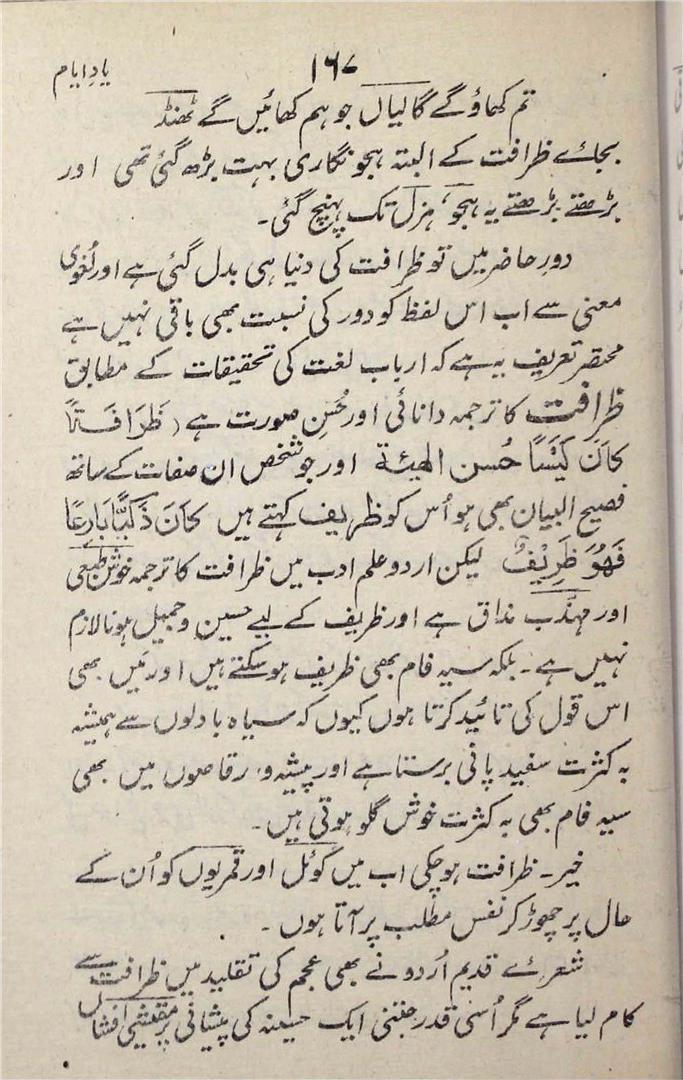 یادِ ایام
۱۶۷
تم کھاؤ گے گالیاں جو ہم کھائیں گے ٹھنڈ
بجائے ظرافت کے البتہ ہجو نگاری بہت بڑھ گئی تھی اور
بڑھتے بڑھتے یہ ہجو، ہزل تک پہنچ گئی۔
دورِ حاضر میں تو ظرافت کی دنیا ہی بدل گئی ہے اور لُغوی
معنی سے اب اس لفظ کو دور کی نسبت بھی باقی نہیں ہے
مختصر تعریف یہ ہے کہ ارباب لغت کی تحقیقات کے مطابق
ظرافت کا ترجمہ دانائی اور حُسنِ صورت ہے (ظَرَافَتًا
کَانَ کَیِّسًا حُسن الھیئۃ اور جو شخص ان صفات کے ساتھ
فصیح البیان بھی ہو اُس کو ظریف کہتے ہیں کَانَ ذَکِیًّا بَارِعًا
فَھُوَ ظَرِیْفٌ لیکن اردو علم ادب میں ظرافت کا ترجمہ خوش طبعی
اور مہذّب مذاق ہے اور ظریف کے لیے حسین و جمیل ہونا لازم
نہیں ہے۔ بلکہ سیہ فام بھی ظریف ہو سکتے ہیں اور مَیں بھی
اس قول کی تائید کرتا ہوں کیوں کہ سیاہ بادلوں سے ہمیشہ
بہ کثرت سفید پانی برستا ہے اور پیشہ ور رقاصوں میں بھی
سیہ فام بھی بہ کثرت خوش گلو ہوتی ہیں۔
خیر۔ ظرافت ہو چکی اب میں کوئل اور قمریوں کو اُن کے
حال پر چھوڑ کر نفس مطلب پر آتا ہوں۔
شعرائے قدیم اُردو نے بھی عجم کی تقلید میں ظرافت سے
کام لیا ہے مگر اُسی قدر جتنی ایک حسینہ کی پیشانی پر مقیشی افشاں